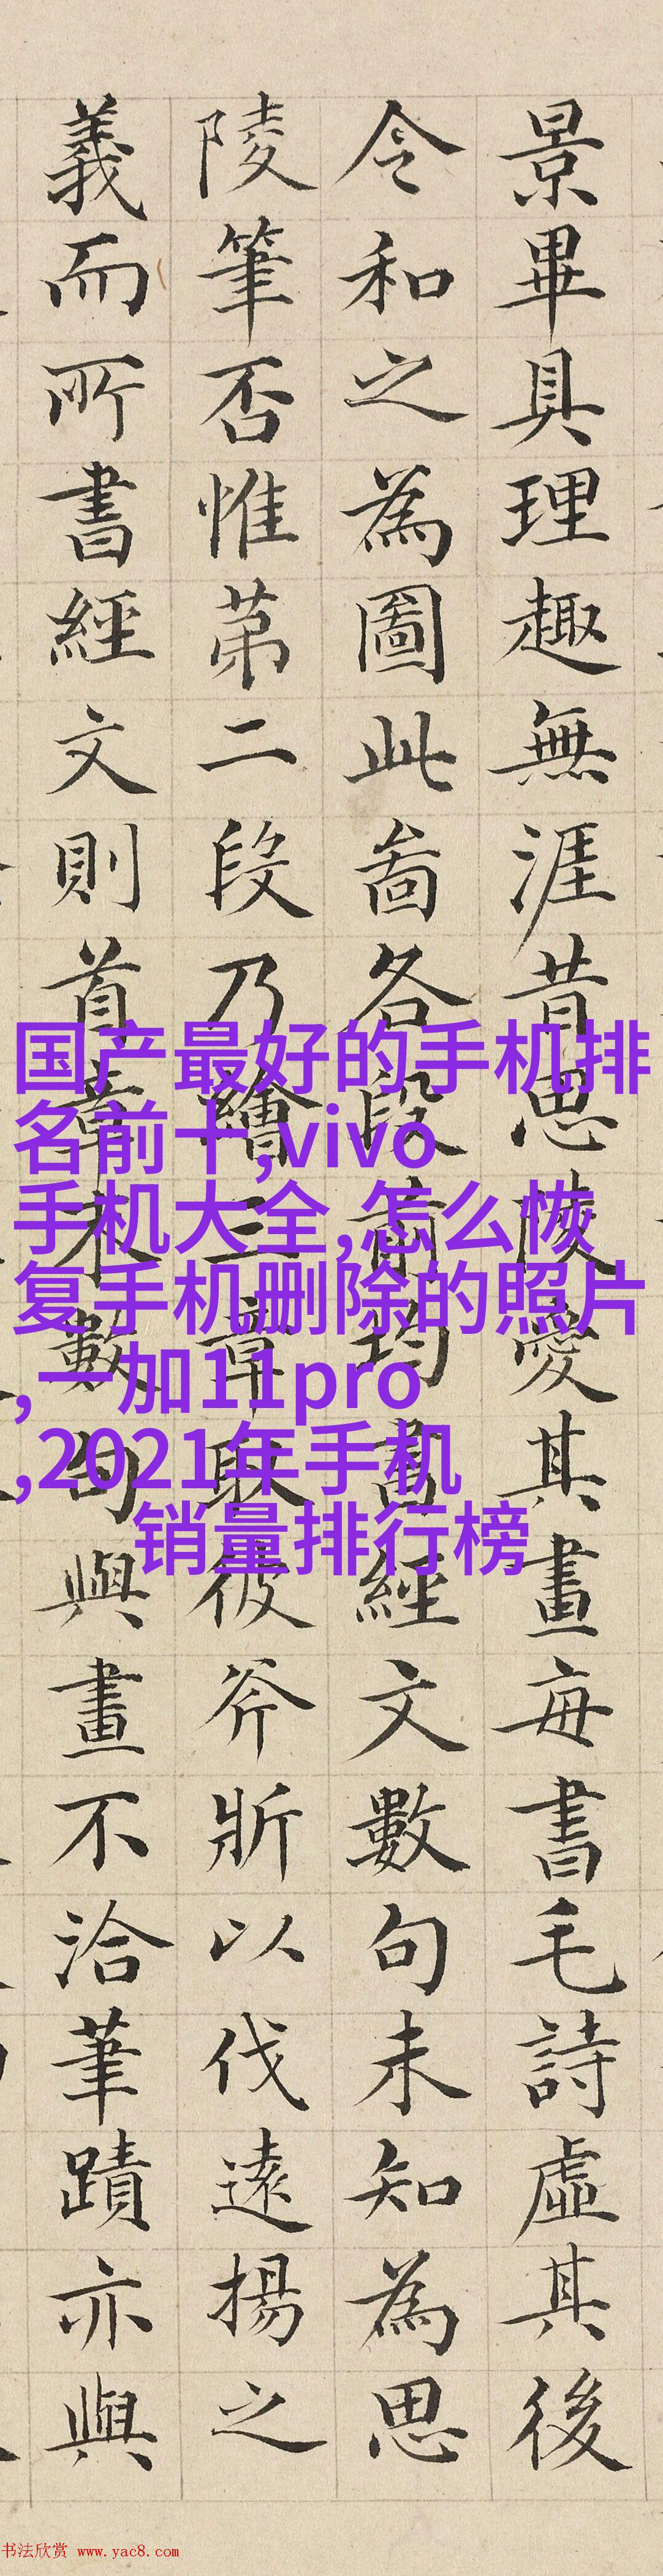 景畢具理趣無涯昔思陵愛其畫每書毛詩虛其後
令和之為圖此啚各段前均書經文數句未知為思
陵筆否惟苐二段乃繪三章取彼斧斨以伐遠揚之
義而所書經文則首章末數句與畫不洽筆蹟亦與
国产最好的手机排
名前十,vivo
手机大全,怎么恢
复手机删除的照片
,一加11pro
,2021年手机
销量排行榜
书法欣赏 www.yac8.com